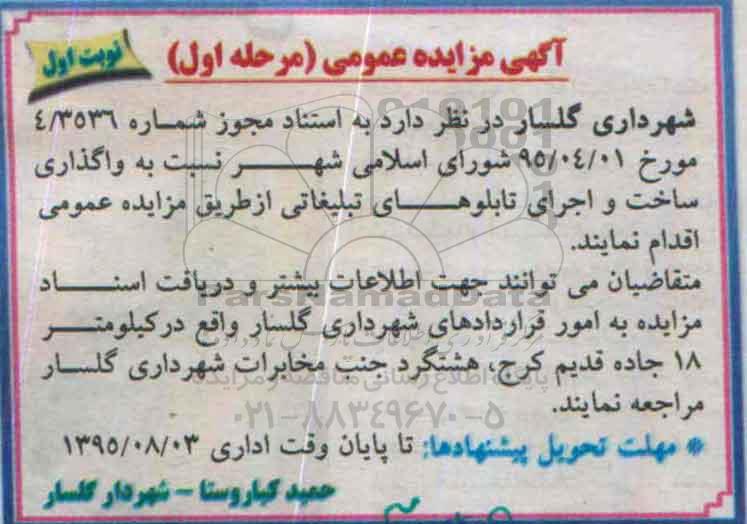 آگهی مزایده عمومی (مرحله اول)
نوبت اول
شهرداری گلسار در نظر دارد به استناد مجوز شماره ۴/۳۵۳۶
مورخ ۹۵/۰۴/۰۱ شورای اسلامی شهر نسبت به واگذاری
ساخت و اجرای تابلوهای تبلیغاتی ازطریق مزایده عمومی
اقدام نمایند.
متقاضیان می توانند جهت اطلاعات بیشتر و دریافت اسناد
مزایده به امور قراردادهای شهرداری گلسار واقع درکیلومتر
۱۸ جاده قدیم کرج، هشتگرد جنب مخابرات شهرداری گلسار
مراجعه نمایند.
مهلت تحویل پیشنهادها: تا پایان وقت اداری ۱۳۹۵/۰۸/۰۳
حمید کیاروستا – شهردار گلسار
ParsNamadData
پایگاه اطلاع رسانی مناقصه و مزایده
۰۲۱-۸۸۳۴۹۶۷۰-۵